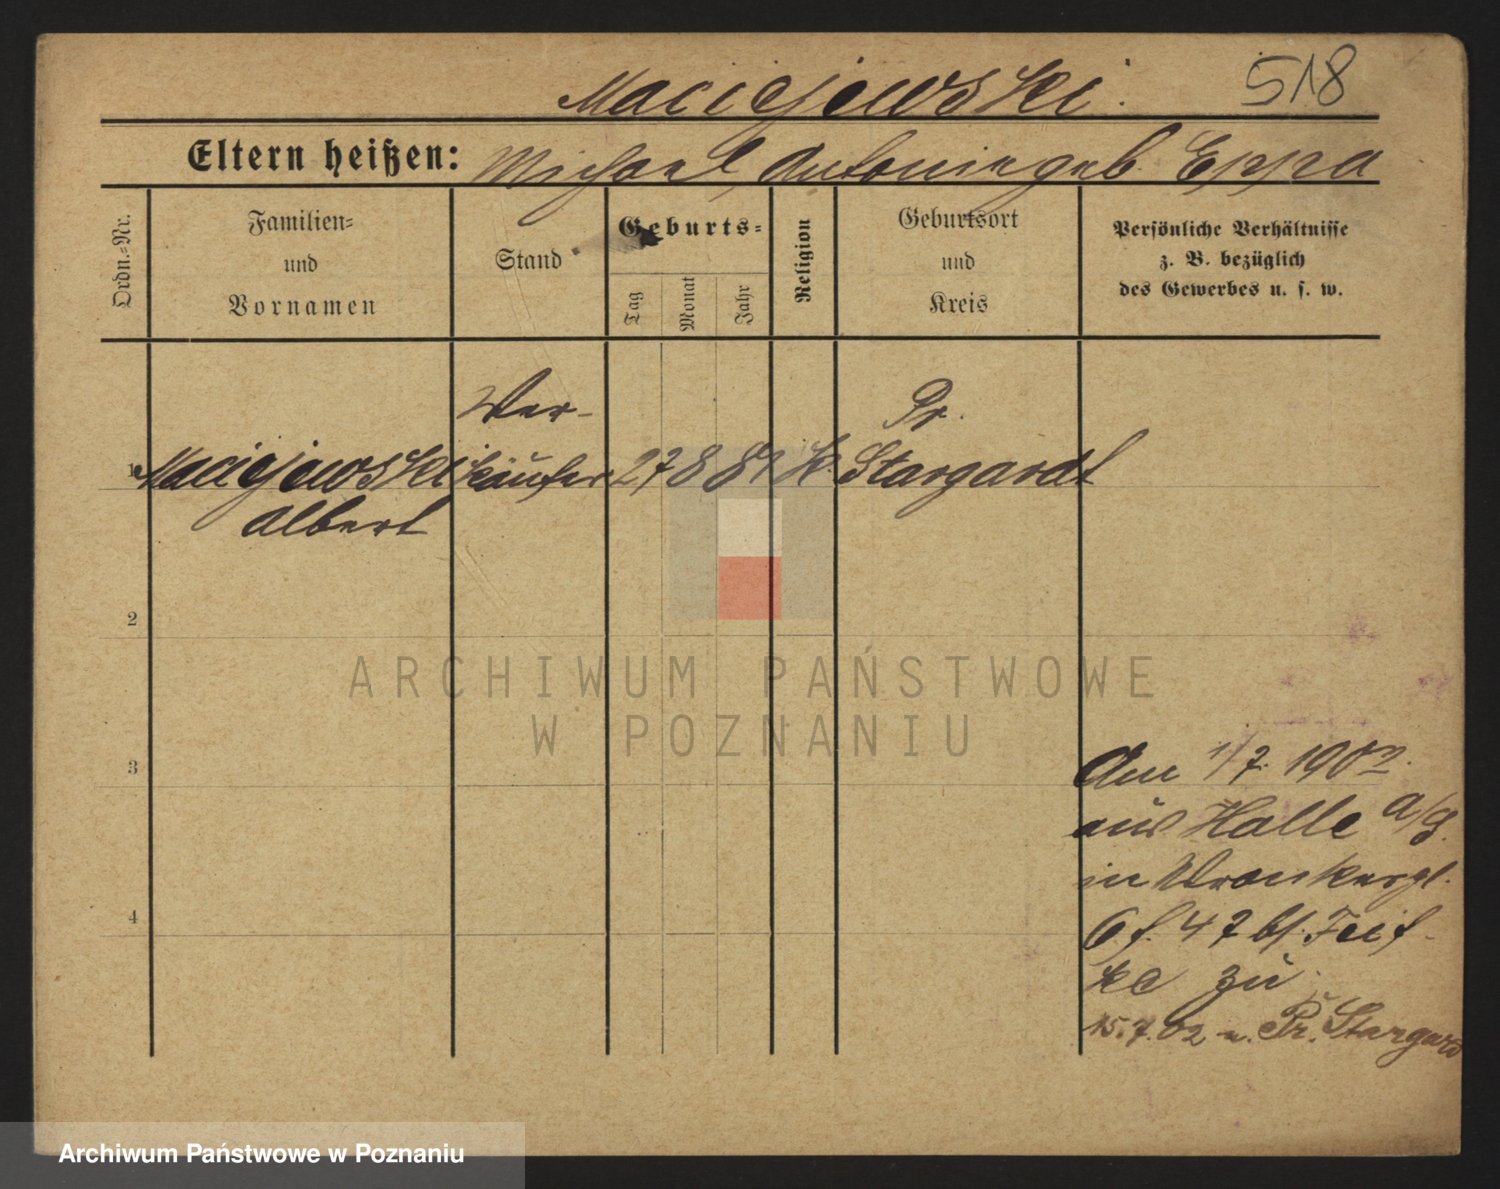 Maciejewski. 518
Eltern heißen: Michael, Antonie geb. Eppa
Ordn.-Nr.
Familien-
und
Vornamen
Stand
Geburts-
Tag
Monat
Jahr
Religion
Geburtsort
und
Kreis
Persönliche Verhältnisse
z. B. bezüglich
des Gewerbes u. s. w.
Ver- Pr.
1 Maciejewski käufer 27 8 81 k. Stargardt
Albert
2
3
4
Am 1/7. 1902.
aus Halle a/S.
in Wronkerpl.
6 f. 47 bf.
ke zu
15.7.02 n. Pr. Stargard
ARCHIWUM PAŃSTWOWE
W POZNANIU
Archiwum Państwowe w Poznaniu